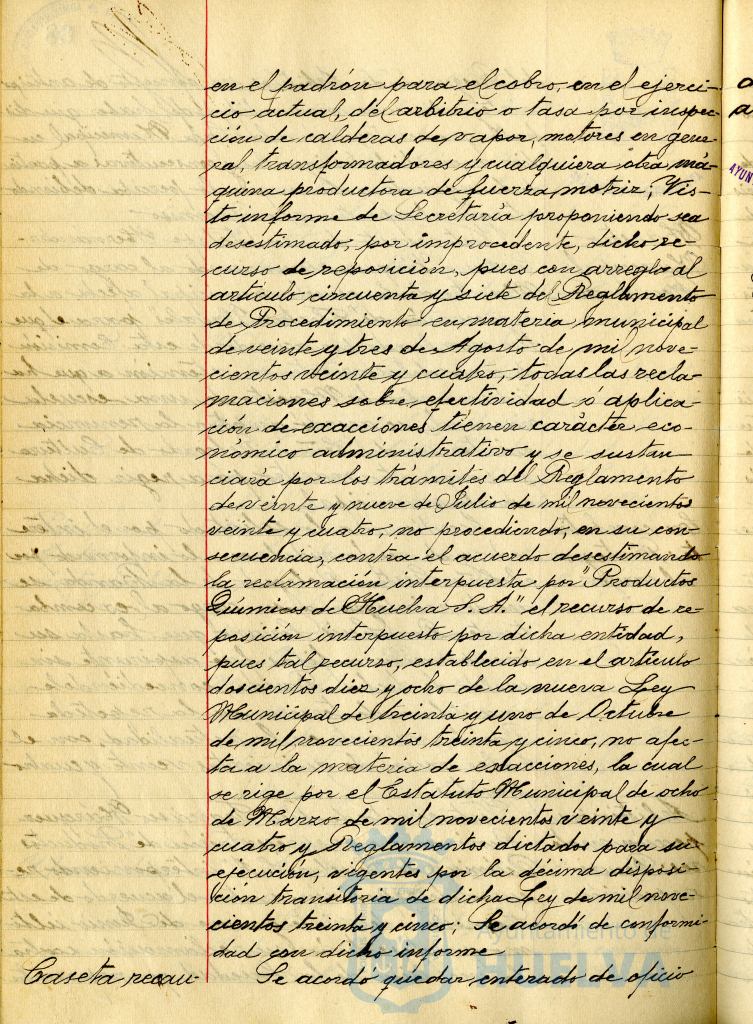 en el padrón para el cobro, en el ejerci-
cio actual, del arbitrio o tasa por inspec-
ción de calderas de vapor, motores en gene-
ral, transformadores y cualquiera otra má-
quina productora de fuerza motriz; Vis-
to informe de Secretaría proponiendo sea
desestimado, por improcedente, dicho re-
curso de reposición, pues con arreglo al
artículo cincuenta y siete del Reglamento
de Procedimiento en materia municipal
de veinte y tres de Agosto de mil nove-
cientos veinte y cuatro, todas las recla-
maciones sobre efectividad ó aplica-
ción de exacciones tienen carácter eco-
nómico administrativo y se sustan
ciará por los trámites del Reglamento
de veinte y nueve de Julio de mil novecientos
veinte y cuatro, no procediendo, en su con-
secuencia, contra el acuerdo desestimando
la reclamación interpuesta por "Productos
Químicos de Huelva S. A." el recurso de re-
posición interpuesto por dicha entidad,
pues tal recurso, establecido en el artículo
doscientos diez y ocho de la nueva Ley
Municipal de treinta y uno de Octubre
de mil novecientos treinta y cinco, no afec-
ta a la materia de exacciones, la cual
se rige por el Estatuto Municipal de ocho
de Marzo de mil novecientos veinte y
cuatro y Reglamentos dictados para su
ejecución, vigentes por la décima disposi-
ción transitoria de dicha Ley de mil nove-
cientos treinta y cinco; Se acordó de conformi-
dad con dicho informe
Caseta recau- Se acordo quedar enterado de oficio
Ayuntamiento de
HUELVA
AYUN